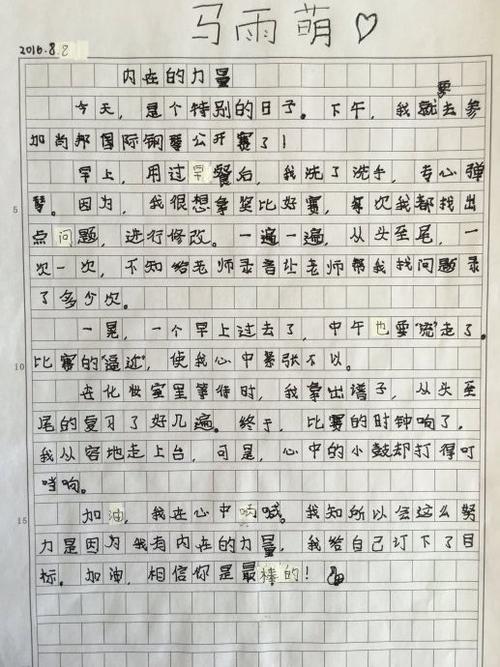 马雨萌♡
2016.8.8
内在的力量
今天，是个特别的日子。下午，我就要去参
加尚邦国际钢琴公开赛了！
早上，用过早餐后，我洗了洗手，专心弹
琴。因为，我很想拿奖比好赛，每次我都找出
5
点问题，进行修改。一遍一遍，从头至尾，一
次一次，不知给老师录音让老师帮我找问题录
了多少次。
一晃，一个早上过去了，中午也要“流”走了。
10
比赛的“逼近”，使我心中紧张不以。
在化妆室里等待时，我拿出谱子，从头至
尾的复习了好几遍。终于，比赛的时钟响了，
我从容地走上台，可是，心中的小鼓却打得叮
当响。
15
加油，我在心中呐喊。我知所以会这么努
力是因为我有内在的力量，我给自己订下了目
标。加油，相信你是最棒的！